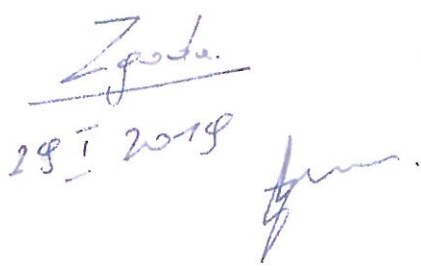 Zgoda.
29 I 2019